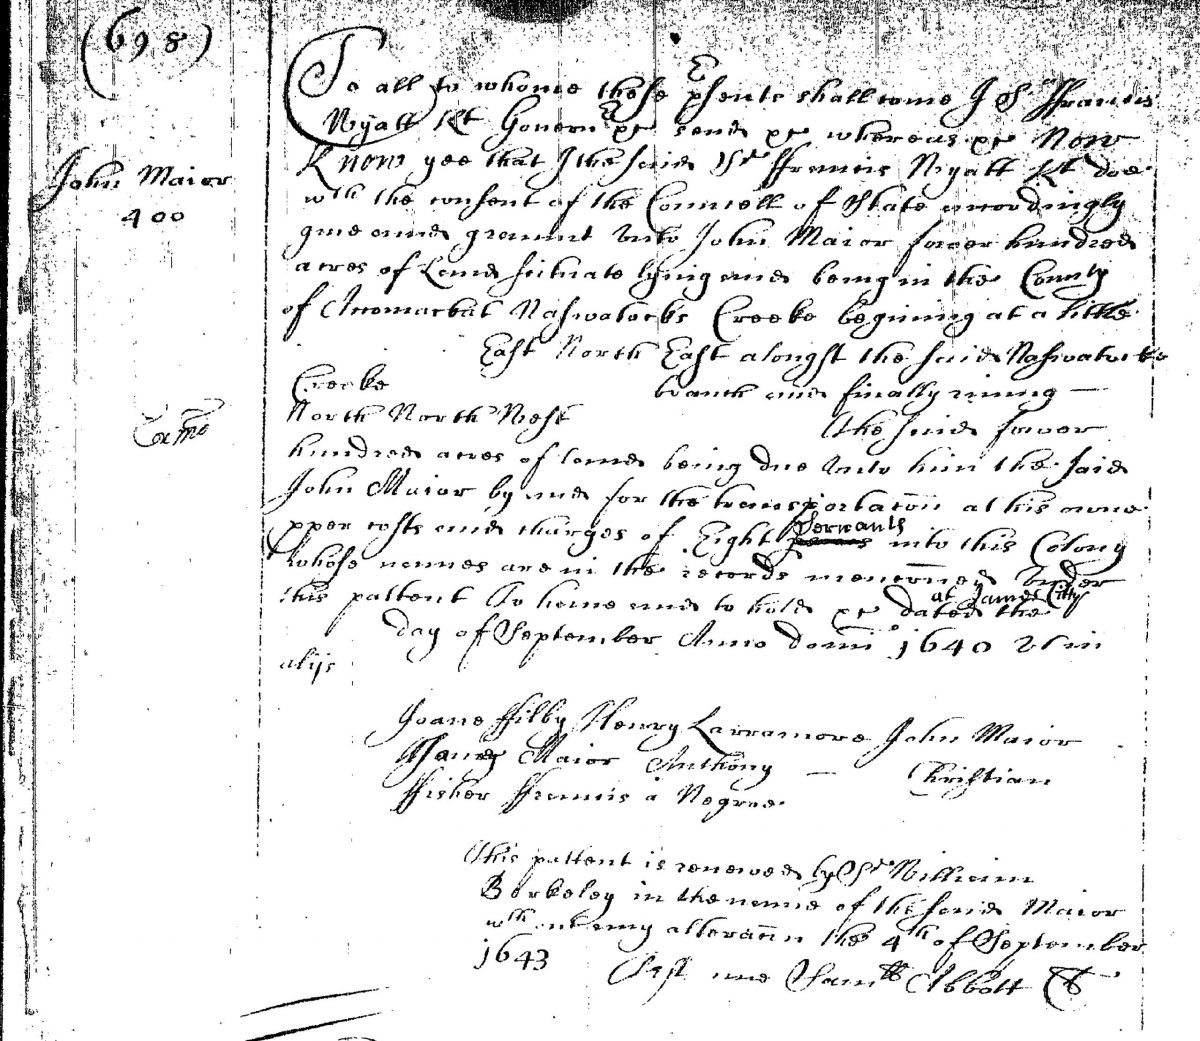 (698)
John Maior
400
To all to whome these psents shall come I Sr. ffrancis
Wyatt Kt Govern &c send &c whereas &c Now
Know yee that I the said Sr ffrancis Wyatt Kt doe
wth the consent of the Councell of State accordingly
give and graunt unto John Maior fower hundred
acres of Land scituate lying and being in the County
of Accomackat Naswatocks Creeke begining at a little
East North East alongst the said Naswatocks
Creeke branch and finally runing —
North North West the said fower
hundred acres of land being due unto him the said
John Maior by and for the transportacon at his owne
pper costs and charges of Eight servants into this Colony
whose names are in the records menconed under
this pattent To have and to hold &c dated at James Citty the
day of September Anno domi 1640 ut in
alijs
Joane ffilby Henry Larramore John Maior
Maior Anthony — Christian
ffisher ffrancis a Negroe
This pattent is renewed by Sr William
Berkeley in the name of the said Maior
wthout any alteracon the 4th of September
1643
Test me Sam Abbott